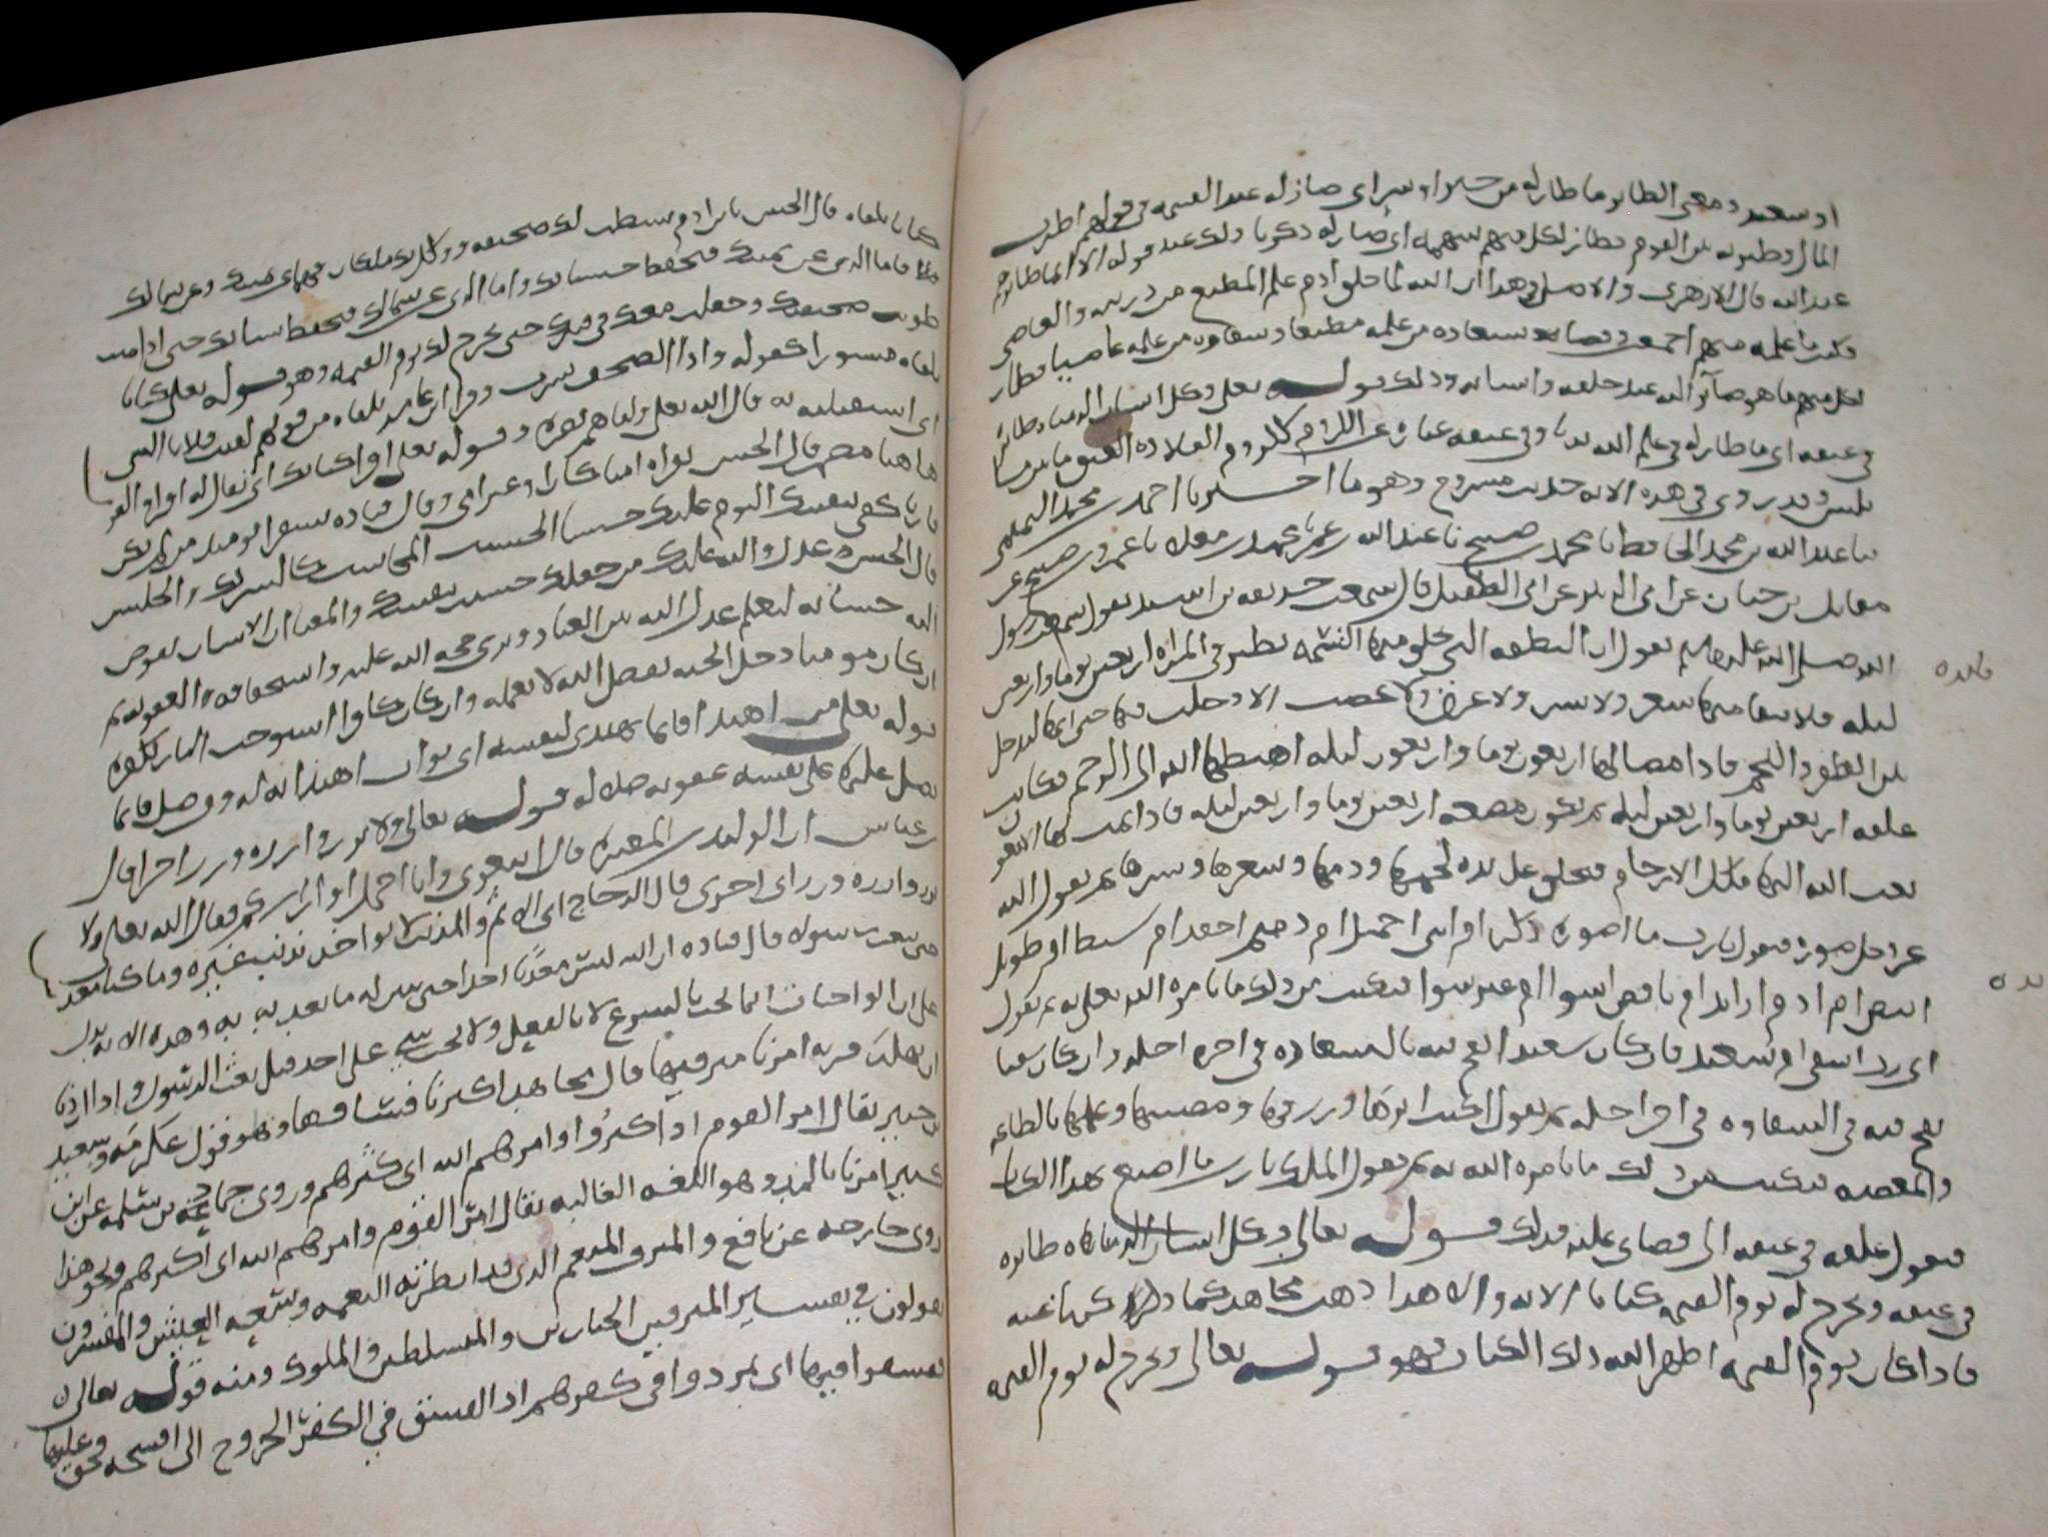 او سعيد ومعنى الطاير ما طار له من خير او شر اى صار له عند القسمة من قولهم اطرت
المال وطيرته بين القوم فطار لكل منهم سهمه اى صار له ذكرنا ذلك عند قوله الا انما طايرهم
عند الله قال الازهرى والاصل فى هذا ان الله لما خلق ادم علم المطيع من ذريته والعاصى
فكتب ما علمه منهم اجمعين وقضا سعاده من علمه مطيعا وشقاوه من علمه عاصيا فطار
لكل منهم ما هو صائر اليه عند خلقه وانشائه وذلك قوله تعلى وكل انسان الزمناه طائره
فى عنقه اى ما طار له فى علم الله وفى عنقه عباره عن اللزوم كلزوم القلاده العنق من بين ما
يلبس وقد روى فى هذه الايه حديث مشروح وهو ما اخبرنا احمد بن محمد التميمى
نا عبد الله بن محمد الحافظ نا محمد بن صبيح نا عبد الله نا محمد بن نا عمرو بن صبيح عن
مقاتل بن حيان عن ابى الزبير عن ابى الطفيل قال سمعت حذيفه بن اسيد يقول سمعت رسول
الله صلى الله عليه وسلم يقول ان النطفه التى يخلق منها النسمه تطير فى المراه اربعين يوما واربعين
ليله فلا يبقا منها شعر ولا بشر ولا عرق ولا عصب الا دخلت فيه حتى انها لتدخل
بين الظفر واللحم فاذا مضا لها اربعون يوما واربعون ليله اهبطها الله الى الرحم فكانت
علقه اربعين يوما واربعين ليله ثم تكون مضغه اربعين يوما واربعين ليله فاذا تمت لها
بعث الله اليها ملك الارحام فيخلق على يده لحمها ودمها وشعرها وبشرها ثم يقول الله
عز وجل صور فيقول يارب ما اصور ذكر ام انثى اجميل ام دميم اجعد ام سبط ام طويل
ابيض ام ادم ام ناقص اسوا ام غير سوا فيكتب من ذلك ما يامره الله تعلى به ثم يقول
اى رب اشقى ام سعيد فان كان سعيدا نفخ فيه بالسعاده فى اخر اجله وان كان شقيا
نفخ فيه فى الشقاوه فى اخر اجله ثم يقول اكتب اثرها ورزقها ومصيبتها وعملها بالطاعه
والمعصيه فيكتب من ذلك ما يامره الله به ثم يقول الملك يا رب ما اصنع بهذا الكتاب
فيقول علقه فى عنقه الى قضاى عليه فذلك قوله تعالى وكل انسان الزمناه طايره
فى عنقه ونخرج له يوم القيمه كتابا الايه والى هذا ذهب مجاهد كما ذكرنا عنه
فاذا كان يوم القيمه اظهر الله ذلك الكتاب وهو قوله تعالى ونخرج له يوم القيمه
فايده
كتابا يلقاه قال الحسن يا بن ادم بسطت لك صحيفه ووكل بك ملكان فهما عن يمينك وعن شمالك
فاما الذى عن يمينك فيحفظ حسناتك واما الذى عن شمالك فيحفظ سياتك حتى اذا مت
طويت صحيفتك وجعلت معك فى قبرك حتى تخرج لك يوم القيمه وهو قوله تعلى كتابا
يلقاه منشورا كقوله واذا الصحف نشرت وقرا ابن عامر يلقاه من قولهم لقيت فلانا الشى
اى استقبلته به قال الله تعلى ولقاهم نضره وقوله تعلى اقرا كتابك اى يقال له اقرا والقول
هاهنا مضمر قال الحسن يقراه اميا كان او غير امى وقال قتاده سيقرا يوميذ من لم يكن
قاريا كفى بنفسك اليوم عليك حسيبا الحسيب المحاسب كالشريك والجليس
قال الحسن عدل والله عليك من جعلك حسيب نفسك والمعنا ان الانسان يفوض
اليه حسابه ليعلم عدل الله بين العباد ويرى حجه الله عليه واستحقاقه العقوبه ثم
ان كان مومنا دخل الجنه بفضل الله لا بعمله وان كان كافرا استوجب النار بكفره
قوله تعلى من اهتدا فانما يهتدى لنفسه اى ثواب اهتدايه له ومن ضل فانما
يضل عليها على نفسه عقوبه ضلاله قوله تعالى ولا تزر وازره وزر اخرا قال
بن عباس ان الوليد بن المغيره قال اتبعونى وانا احمل اوزاركم فقال الله تعلى ولا
تزر وازره وزر اى اخرى قال الزجاج اى الاثم والمذنب لا يواخذ بذنب غيره وما كنا معذبين
حتى نبعث رسولا قال قتاده ان الله ليس معذبا احدا حتى يبين له ما يعذبه به وهذه الايه تدل
على ان الواجبات انما تجب بالشرع لا بالعقل ولا يجب شى على احد قبل بعث الرسول واذا اردنا
ان نهلك قريه امرنا مترفيها قال مجاهد اكثرنا فساقها وهو قول عكرمه وسعيد
بن جبير يقال امر القوم اذا كثروا وامرهم الله اى كثرهم وروى حماد بن سلمه عن ابن
كثير امرنا بالمد وهو اللغه الغالبه يقال امر القوم وامرهم الله اى اكثرهم ونحو هذا
روى خارجه عن نافع والمترف المنعم الذى قد ابطرته النعمه وسعه العيش والمفسرون
يقولون فى تفسير المترفين الجبارين والمسلطين والملوك ومنه قوله تعالى
ففسقوا فيها اى تمردوا فى كفرهم اذ الفسق فى الكفر الخروج الى افحشه فحق عليها